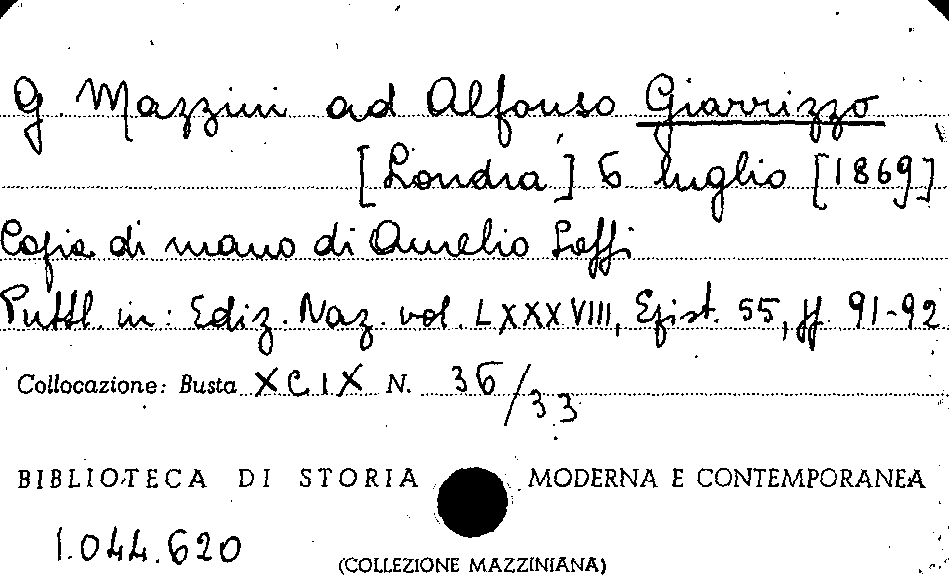 G. Mazzini ad Alfonso Giarrizzo
[Londra] 6 luglio [1869]
Copia di mano di Aurelio Saffi
Pubbl. in: Ediz. Naz. vol. LXXXVIII, Epist. 55, pp. 91-92
Collocazione: Busta XCIX N. 36/33
BIBLIOTECA DI STORIA MODERNA E CONTEMPORANEA
1.044.620
(COLLEZIONE MAZZINIANA)